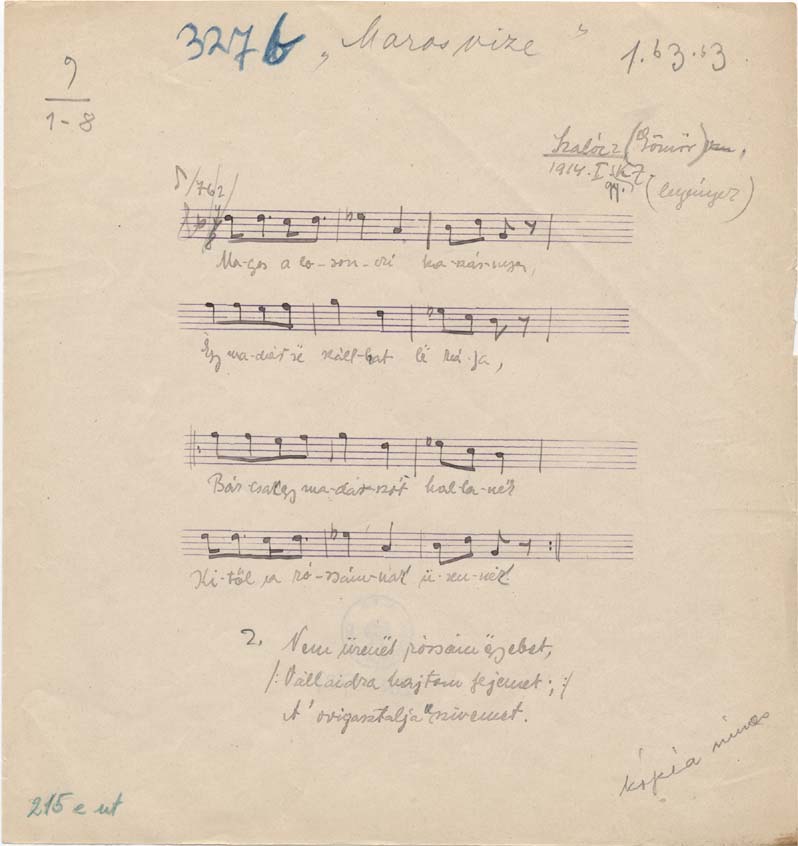 327b „Maros vize" 1. b3. b3.
9
1-8
Szalócz (Gömör)
1914. I.
(legényer)
Ma-gos a lo-son-czi ka-szár-nya,
Egy ma-dár së száll-hat lë reá-ja,
Bár-csak egy ma-dár-szót hal-la-nék
Ki-től a ró-zsám-nak ü-zen-nék.
2. Nem üzenët rózsám ëgyebet,
/: Vállaidra hajtom fejemet; :/
szivemet.
kópia nincs
215 e ut